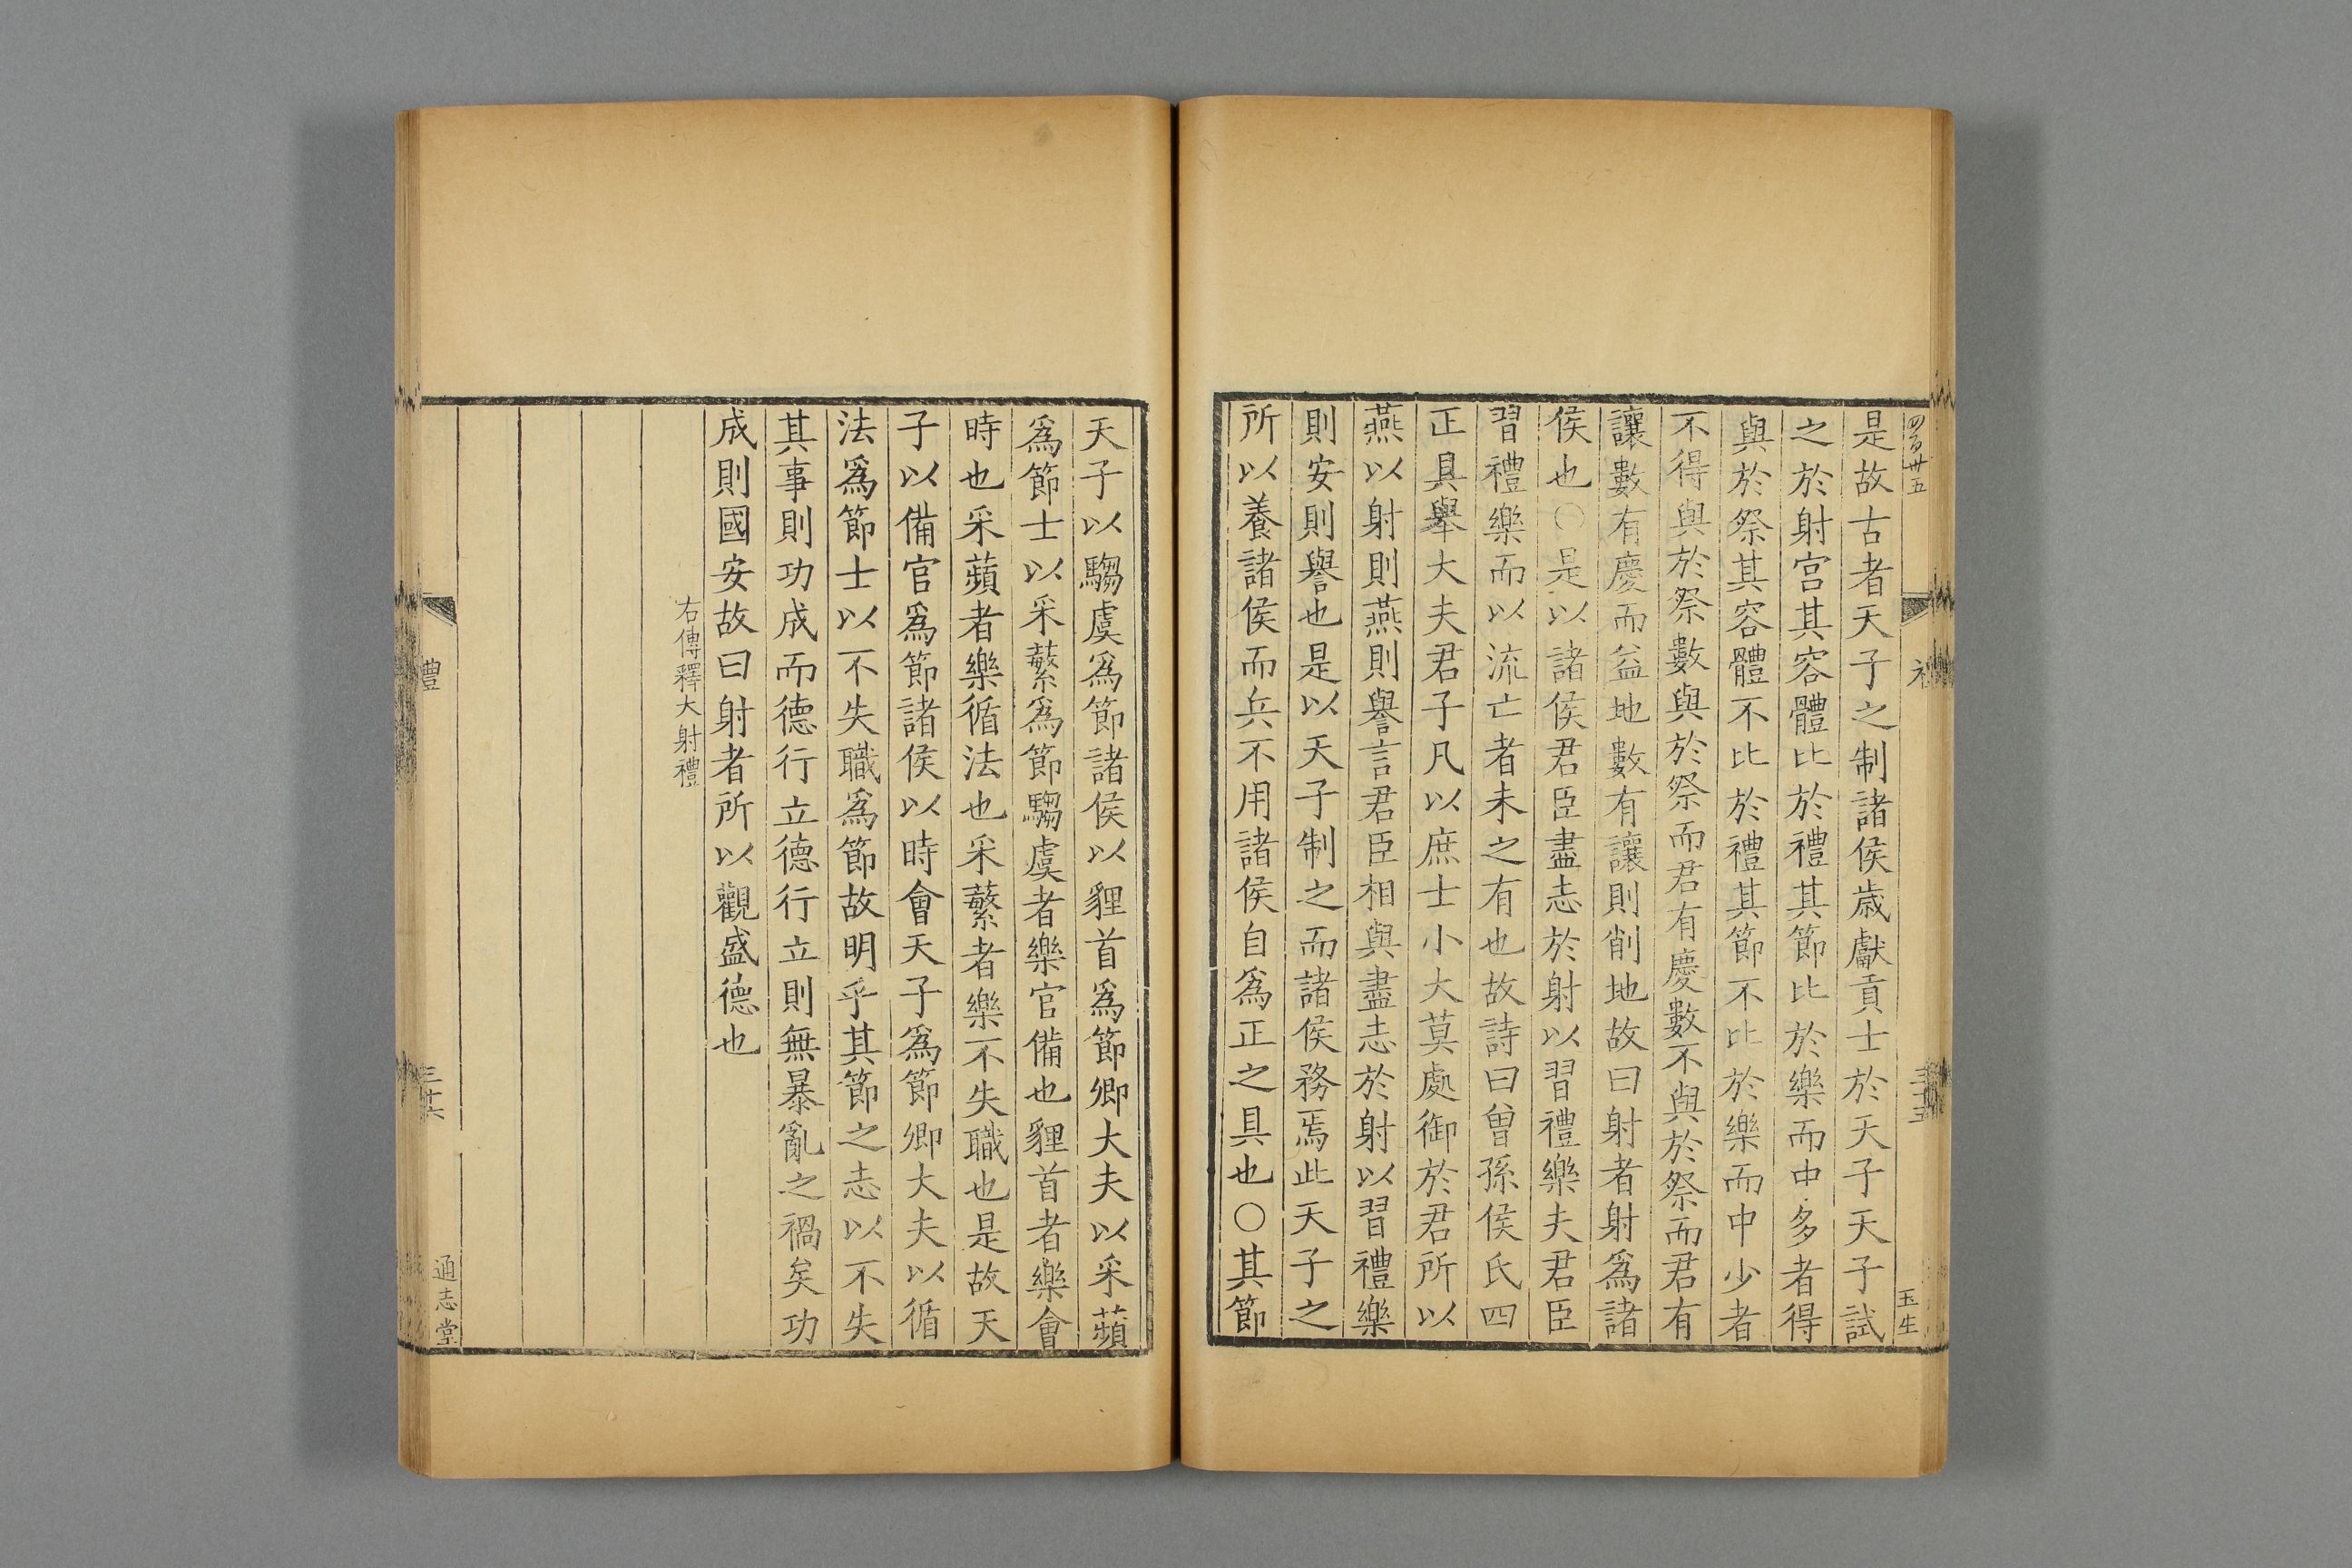 四百卅五
玉生
是故古者天子之制諸侯歳獻貢士於天子天子試
之於射宮其容體比於禮其節比於樂而中多者得
與於祭其容體不比於禮其節不比於樂而中少者
不得與於祭數與於祭而君有慶數不與於祭而君有
讓數有慶而益地數有讓則削地故曰射者射爲諸
侯也○是以諸侯君臣盡志於射以習禮樂夫君臣
習禮樂而以流亡者未之有也故詩曰曾孫侯氏四
正具舉大夫君子凡以庶士小大莫處御於君所以
燕以射則燕則譽言君臣相與盡志於射以習禮樂
則安則譽也是以天子制之而諸侯務焉此天子之
所以養諸侯而兵不用諸侯自爲正之具也○其節
天子以騶虞爲節諸侯以貍首爲節卿大夫以采蘋
爲節士以采蘩爲節騶虞者樂官備也貍首者樂會
時也采蘋者樂循法也采蘩者樂不失職也是故天
子以備官爲節諸侯以時會天子爲節卿大夫以循
法爲節士以不失職爲節故明乎其節之志以不失
其事則功成而德行立德行立則無暴亂之禍矣功
成則國安故曰射者所以觀盛德也
右傳釋大射禮
禮
三十六
通志堂